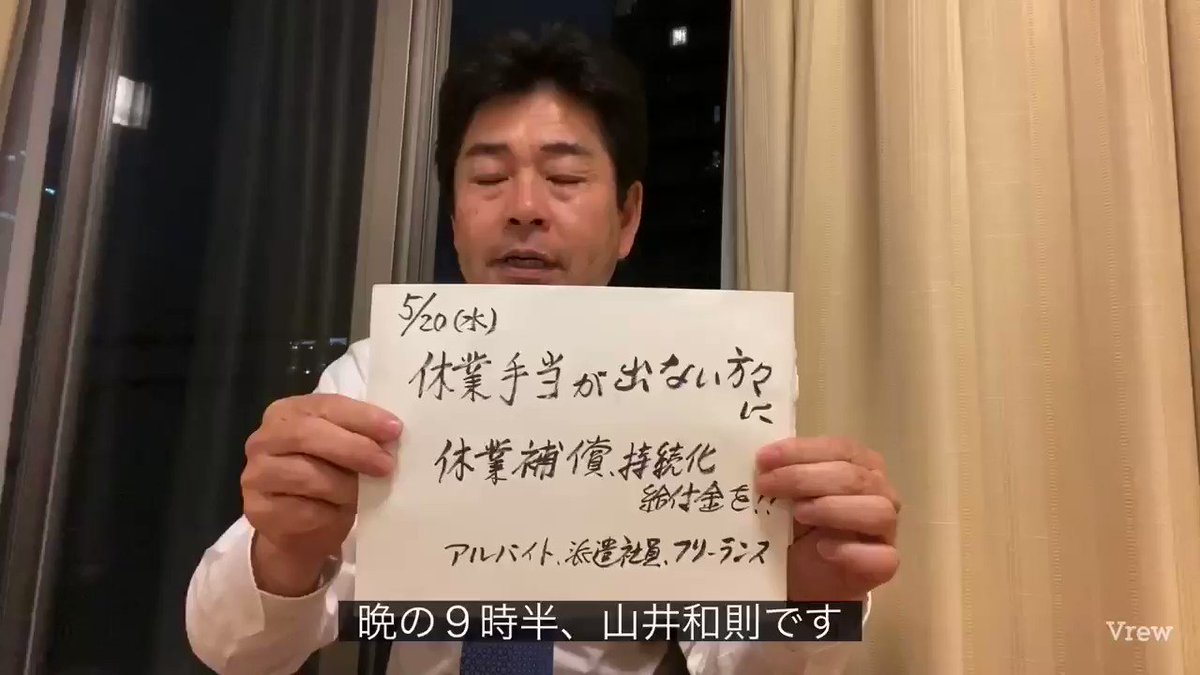 5/20(水)
休業手当が出ない方々
に
休業補償、持続化
給付金を!!
アルバイト、派遣社員、フリーランス
晩の9時半、山井和則です
Vrew